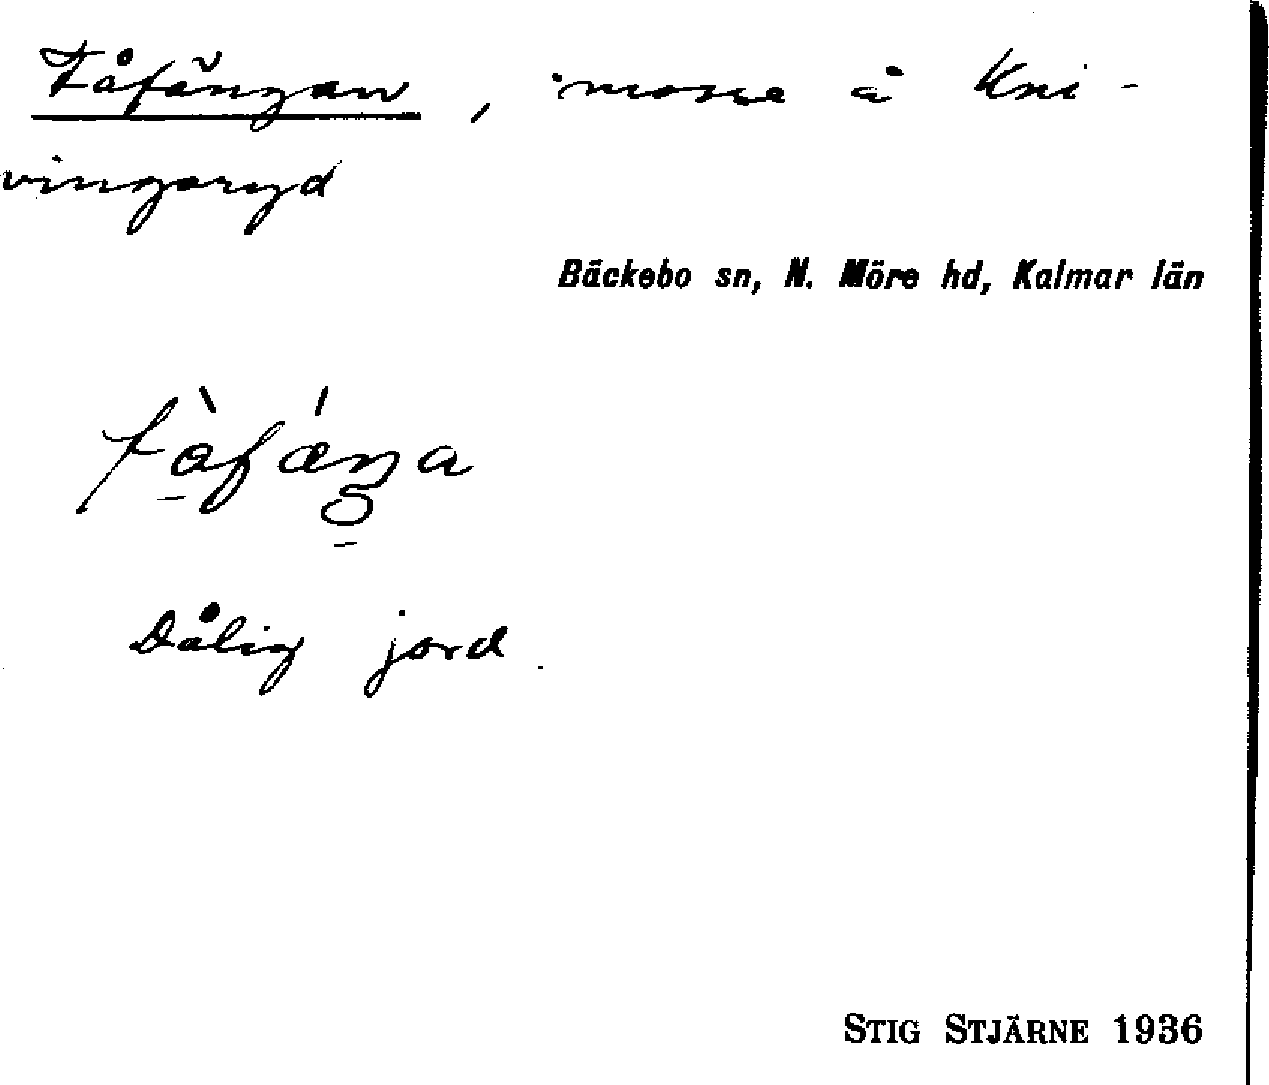 Fåfängan, mosse å Kni-
vingaryd
Bäckebo sn, N. Möre hd, Kalmar län
fàfǽŋa
Dålig jord.
STIG STJÄRNE 1936